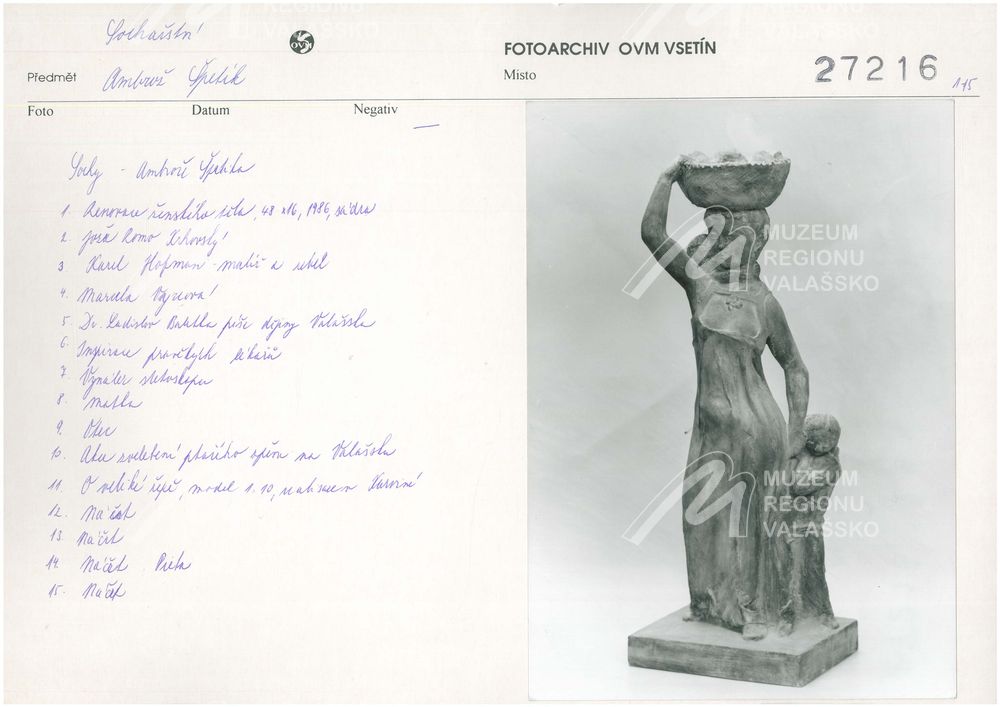 Sochařství
OVM
FOTOARCHIV OVM VSETÍN
Předmět Ambrož Špetík
Místo
27216
1-15
Foto Datum Negativ
Sochy - Ambrož Špetík
1. Renovace ženského těla, 48 x 16, 1986, sádra
2. Joža Romo
3. Karel Hofman - malíř a rebel
4. Marcela
5. Dr. Ladislav Baletka píše dějiny Valašska
6. Inspirace pravěkých lékařů
7. Vynález stetoskopu
8. Matka
9. Otec
10. zvelebení ptačího zpěvu na Valašsku
11. O veliké řepě, model 1:10, realizace v Karviné
12. Náčrt
13. Náčrt
14. Náčrt Pieta
15. Náčrt
MUZEUM
REGIONU
VALAŠSKO
MUZEUM
REGIONU
VALAŠSKO
MUZEUM
REGIONU
VALAŠSKO
MUZEUM
REGIONU
VALAŠSKO